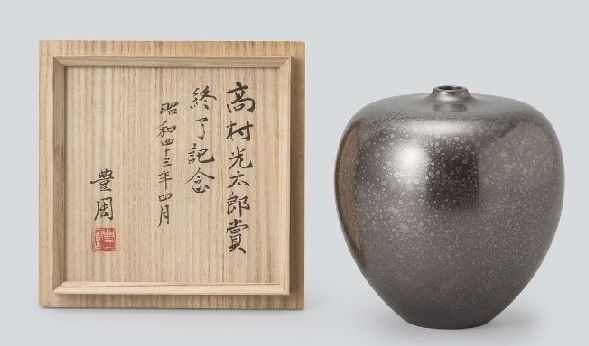 高村光太郎賞
終了記念
昭和四十三年四月
豊周